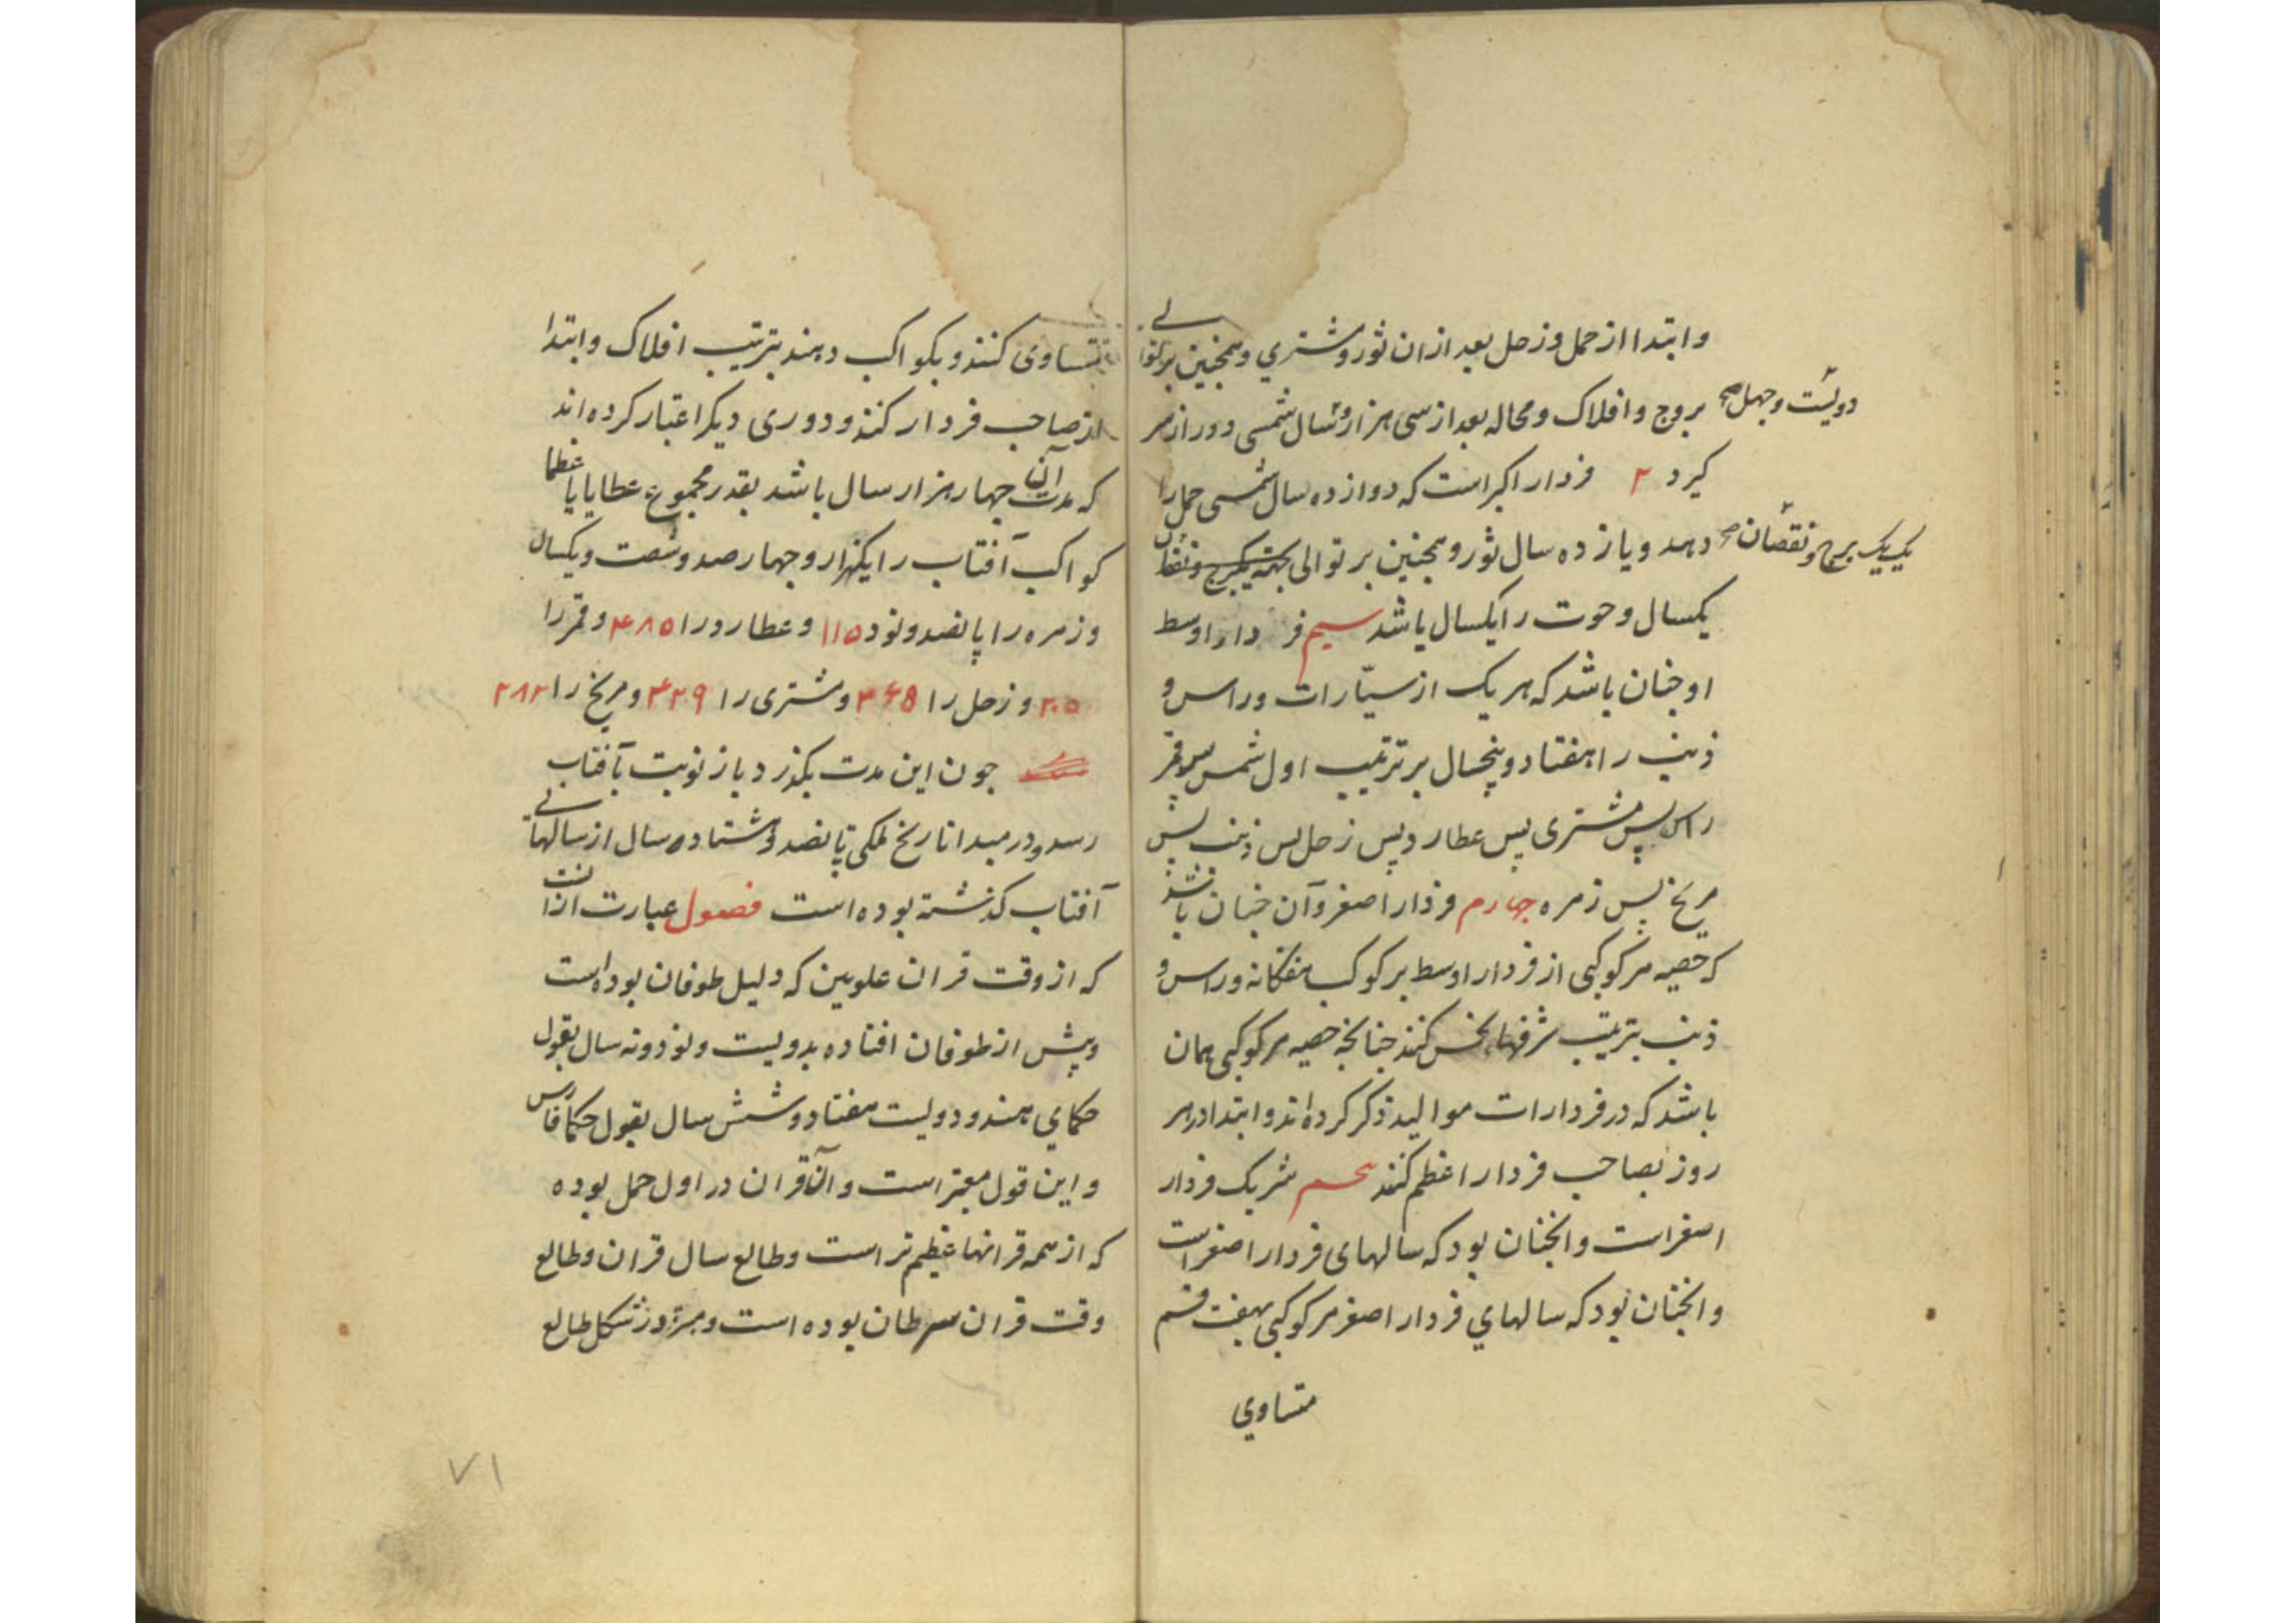 وابتدا از حمل و زحل بعد از ان ثور و مشتري وهمچنین بر توالے
بروج و افلاک و محاله بعد از سی هزار و سال شمسی دور از سر
دویست وچهل صح
کیرد ۲ فردار اکبر است که دوازده سال شمسی حمل را
دهد و یازده سال ثور و همچنین بر توالی
یک یک برج و نقصان صح
یکسال و حوت را یکسال باشد سیم فردار اوسط
او چنان باشد که هر یک از سیّارات و راس و
ذنب را هفتاد و پنجسال بر ترتیب اول شمس پس قمر
راس پس مشتری پس عطارد پس زحل پس ذنب پس
مریخ پس زهره چهارم فردار اصغر و آن چنان باشد
که حصه هر کوکبی از فردار اوسط بر کوکب هفتکانه و راس و
ذنب بترتیب شرفها بخش کنند چنانچه حصه هر کوکبی همان
باشد که در فردارات موالید ذکر کرده اند و ابتدا در هر
روز بصاحب فردار اعظم کنند شریک فردار
اصغر است وانچنان بود که سالهای فردار اصغر است
وانچنان بود که سالهاي فردار اصغر هر کوکبی بهفت قسم
متساوي
متساوی کنند و بکواکب دهند بترتیب افلاک و ابتدا
از صاحب فردار کنند و دوری دیکر اعتبار کرده اند
که مدت آن چهار هزار سال باشد بقدر مجموع عطایا عظما
کواکب آفتاب را یکهزار و چهارصد و شصت و یکسال
و زهره را پانصد و نود ۱۱۵ و عطارد را ۴۸۵ و قمر را
۲۰۵ و زحل را ۴۶۵ و مشتری را ۴۲۹ و مریخ را ۲۸۲
چون این مدت بکذرد باز نوبت بآفتاب
رسد و در مبدا تاریخ ملکی پانصد و هشتاد سال از سالهائے
آفتاب کذشته بوده است فصول عبارت از انست
که از وقت قران علویین که دلیل طوفان بوده است
وپیش از طوفان افتاده بدویست و نود و نه سال بقول
حکماي هند و دویست هفتاد و شش سال بقول حکما فارس
و این قول معتبر است و آن قران در اول حمل بوده
که از همه قرانها عظیم تر است و طالع سال قران و طالع
وقت قران سرطان بوده است و طالع
۷۱